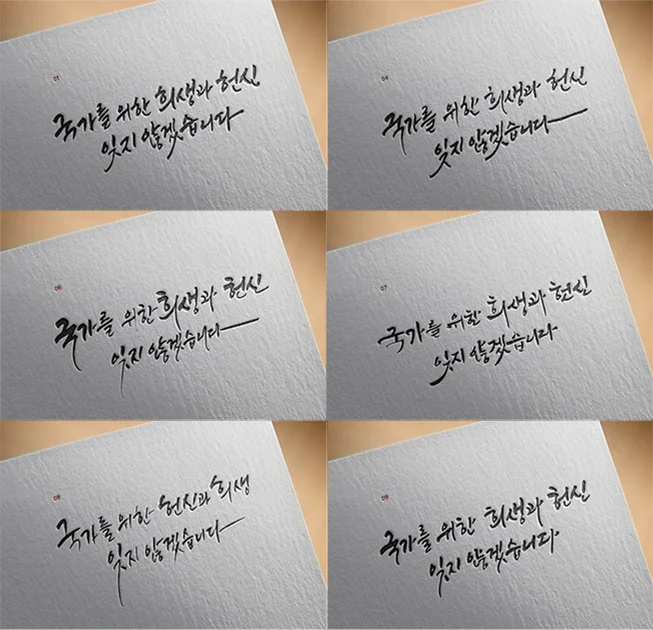 01
국가를 위한 희생과 헌신
잊지 않겠습니다
04
국가를 위한 희생과 헌신
잊지 않겠습니다
05
국가를 위한 희생과 헌신
잊지 않겠습니다
07
국가를 위한 희생과 헌신
잊지 않겠습니다
08
국가를 위한 헌신과 희생
잊지 않겠습니다
09
국가를 위한 희생과 헌신
잊지 않겠습니다